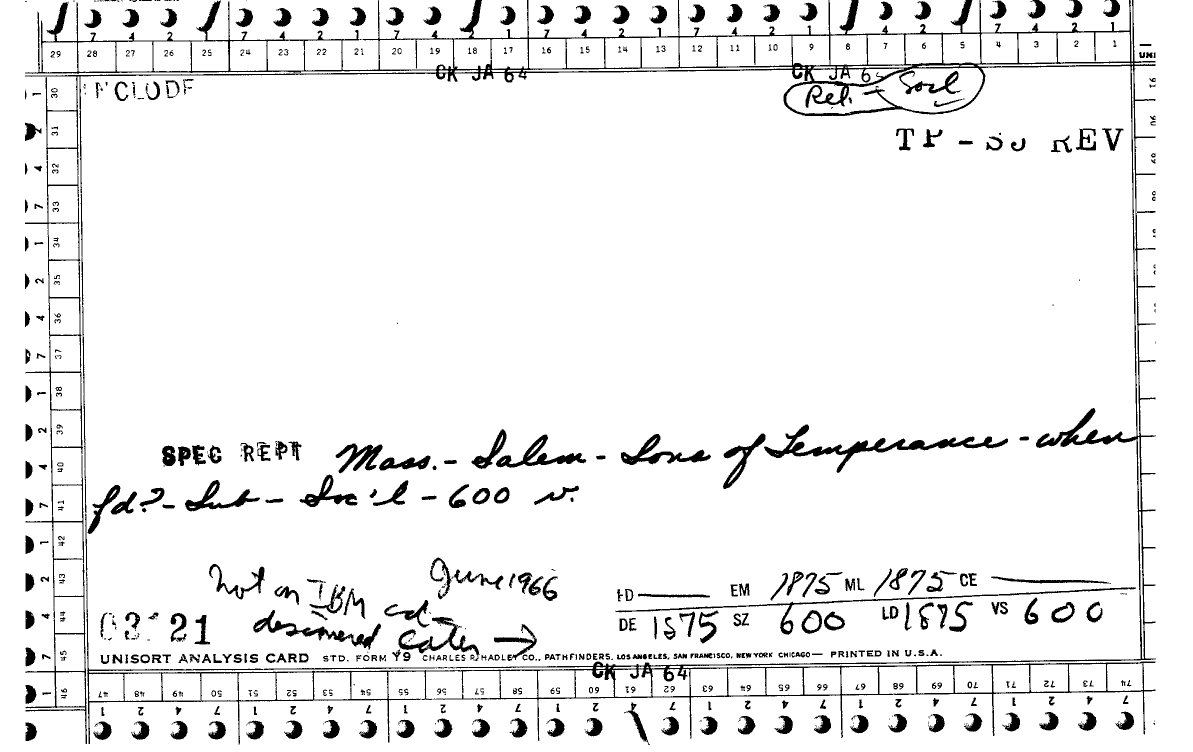 7 4 2 1 7 4 2 1 7 4 2 1 7 4 2 1 7 4 2 1 7 4 2 1
29 28 27 26 25 24 23 22 21 20 19 18 17 16 15 14 13 12 11 10 9 8 7 6 5 4 3 2 1
CK JA 64 CK JA 64
Rel. - Socl
TP - REV
1 30
2 31
4 32
7 33
1 34
2 35
4 36
7 37
1 38
2 39
4 40
7 41
1 42
2 43
4 44
7 45
1 46
SPEC REPT Mass. - Salem - Sons of Temperance - when
fd? - Sub - Soc'l - 600 v.
Not on IBM cd - June 1966
discovered later →
FD EM 1875 ML 1875 CE
DE 1875 SZ 600 LD 1875 VS 600
UNISORT ANALYSIS CARD STD. FORM Y9 CHARLES R. HADLEY CO., PATHFINDERS, LOS ANGELES, SAN FRANCISCO, NEW YORK CHICAGO — PRINTED IN U.S.A.
CK JA 64
47 48 49 50 51 52 53 54 55 56 57 58 59 60 61 62 63 64 65 66 67 68 69 70 71 72 73 74
1 2 4 7 1 2 4 7 1 2 4 7 1 2 4 7 1 2 4 7 1 2 4 7 1 2 4 7